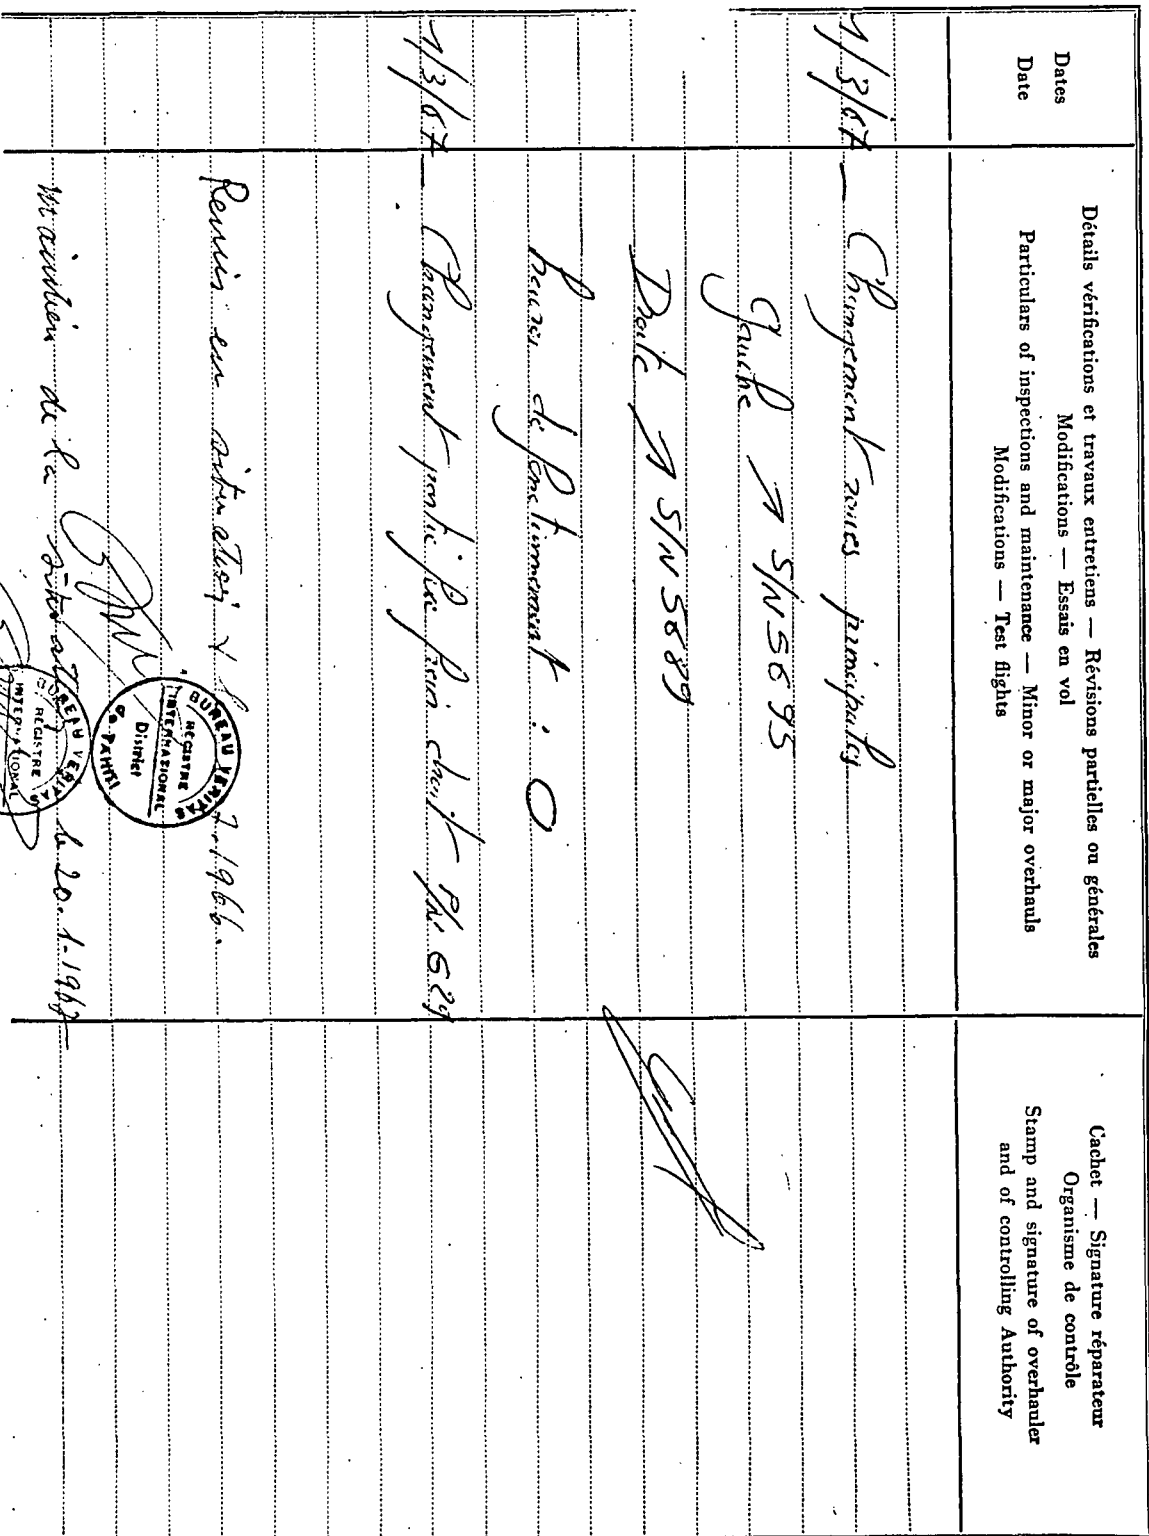 Dates
Date
Détails vérifications et travaux entretiens — Révisions partielles ou générales
Modifications — Essais en vol
Particulars of inspections and maintenance — Minor or major overhauls
Modifications — Test flights
Cachet — Signature réparateur
Organisme de contrôle
Stamp and signature of overhauler
and of controlling Authority
1/3/67 — Changement roues principales
Gauche → S/N 5695
Droite → S/N 5689
heures de fonctionnement : 0
1/3/67 — Changement partie fixe frein droit P/N 629
Remis en situation 1966.
BUREAU VERITAS
REGISTRE
INTERNATIONAL
District
Maintien de la situation le 20.1.1967
BUREAU VERITAS
REGISTRE
INTERNATIONAL